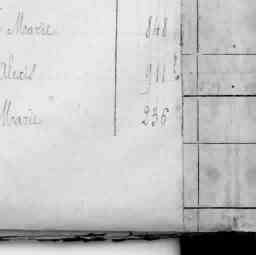 Marie 848
Alexis 911
Marie " 236